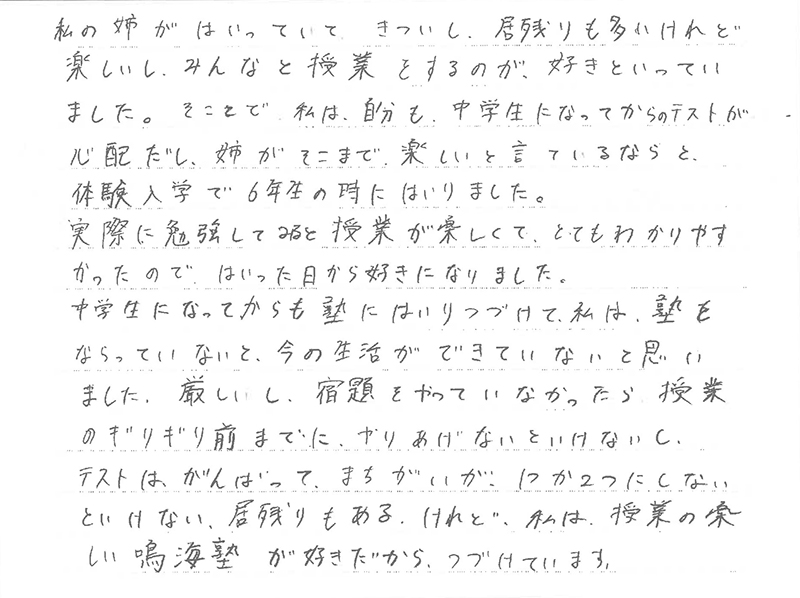 私の姉がはいっていて、きついし、居残りも多いけれど
楽しいし、みんなと授業をするのが、好きといってい
ました。そことで、私は、自分も、中学生になってからのテストが
心配だし、姉がそこまで、楽しいと言ているならと、
体験入学で6年生の時にはいりました。
実際に勉強してみると授業が楽しくて、とてもわかりやす
かったので、はいった日から好きになりました。
中学生になってからも塾にはいりつづけて、私は、塾を
ならっていないと、今の生活ができていないと思い
ました。厳しいし、宿題をやっていなかったら授業
のギリギリ前までに、やりあげないといけないし、
テストは、がんばって、まちがいが、1つか2つにしない
といけない、居残りもある。けれど、私は、授業の楽
しい鳴海塾が好きだから、つづけています。